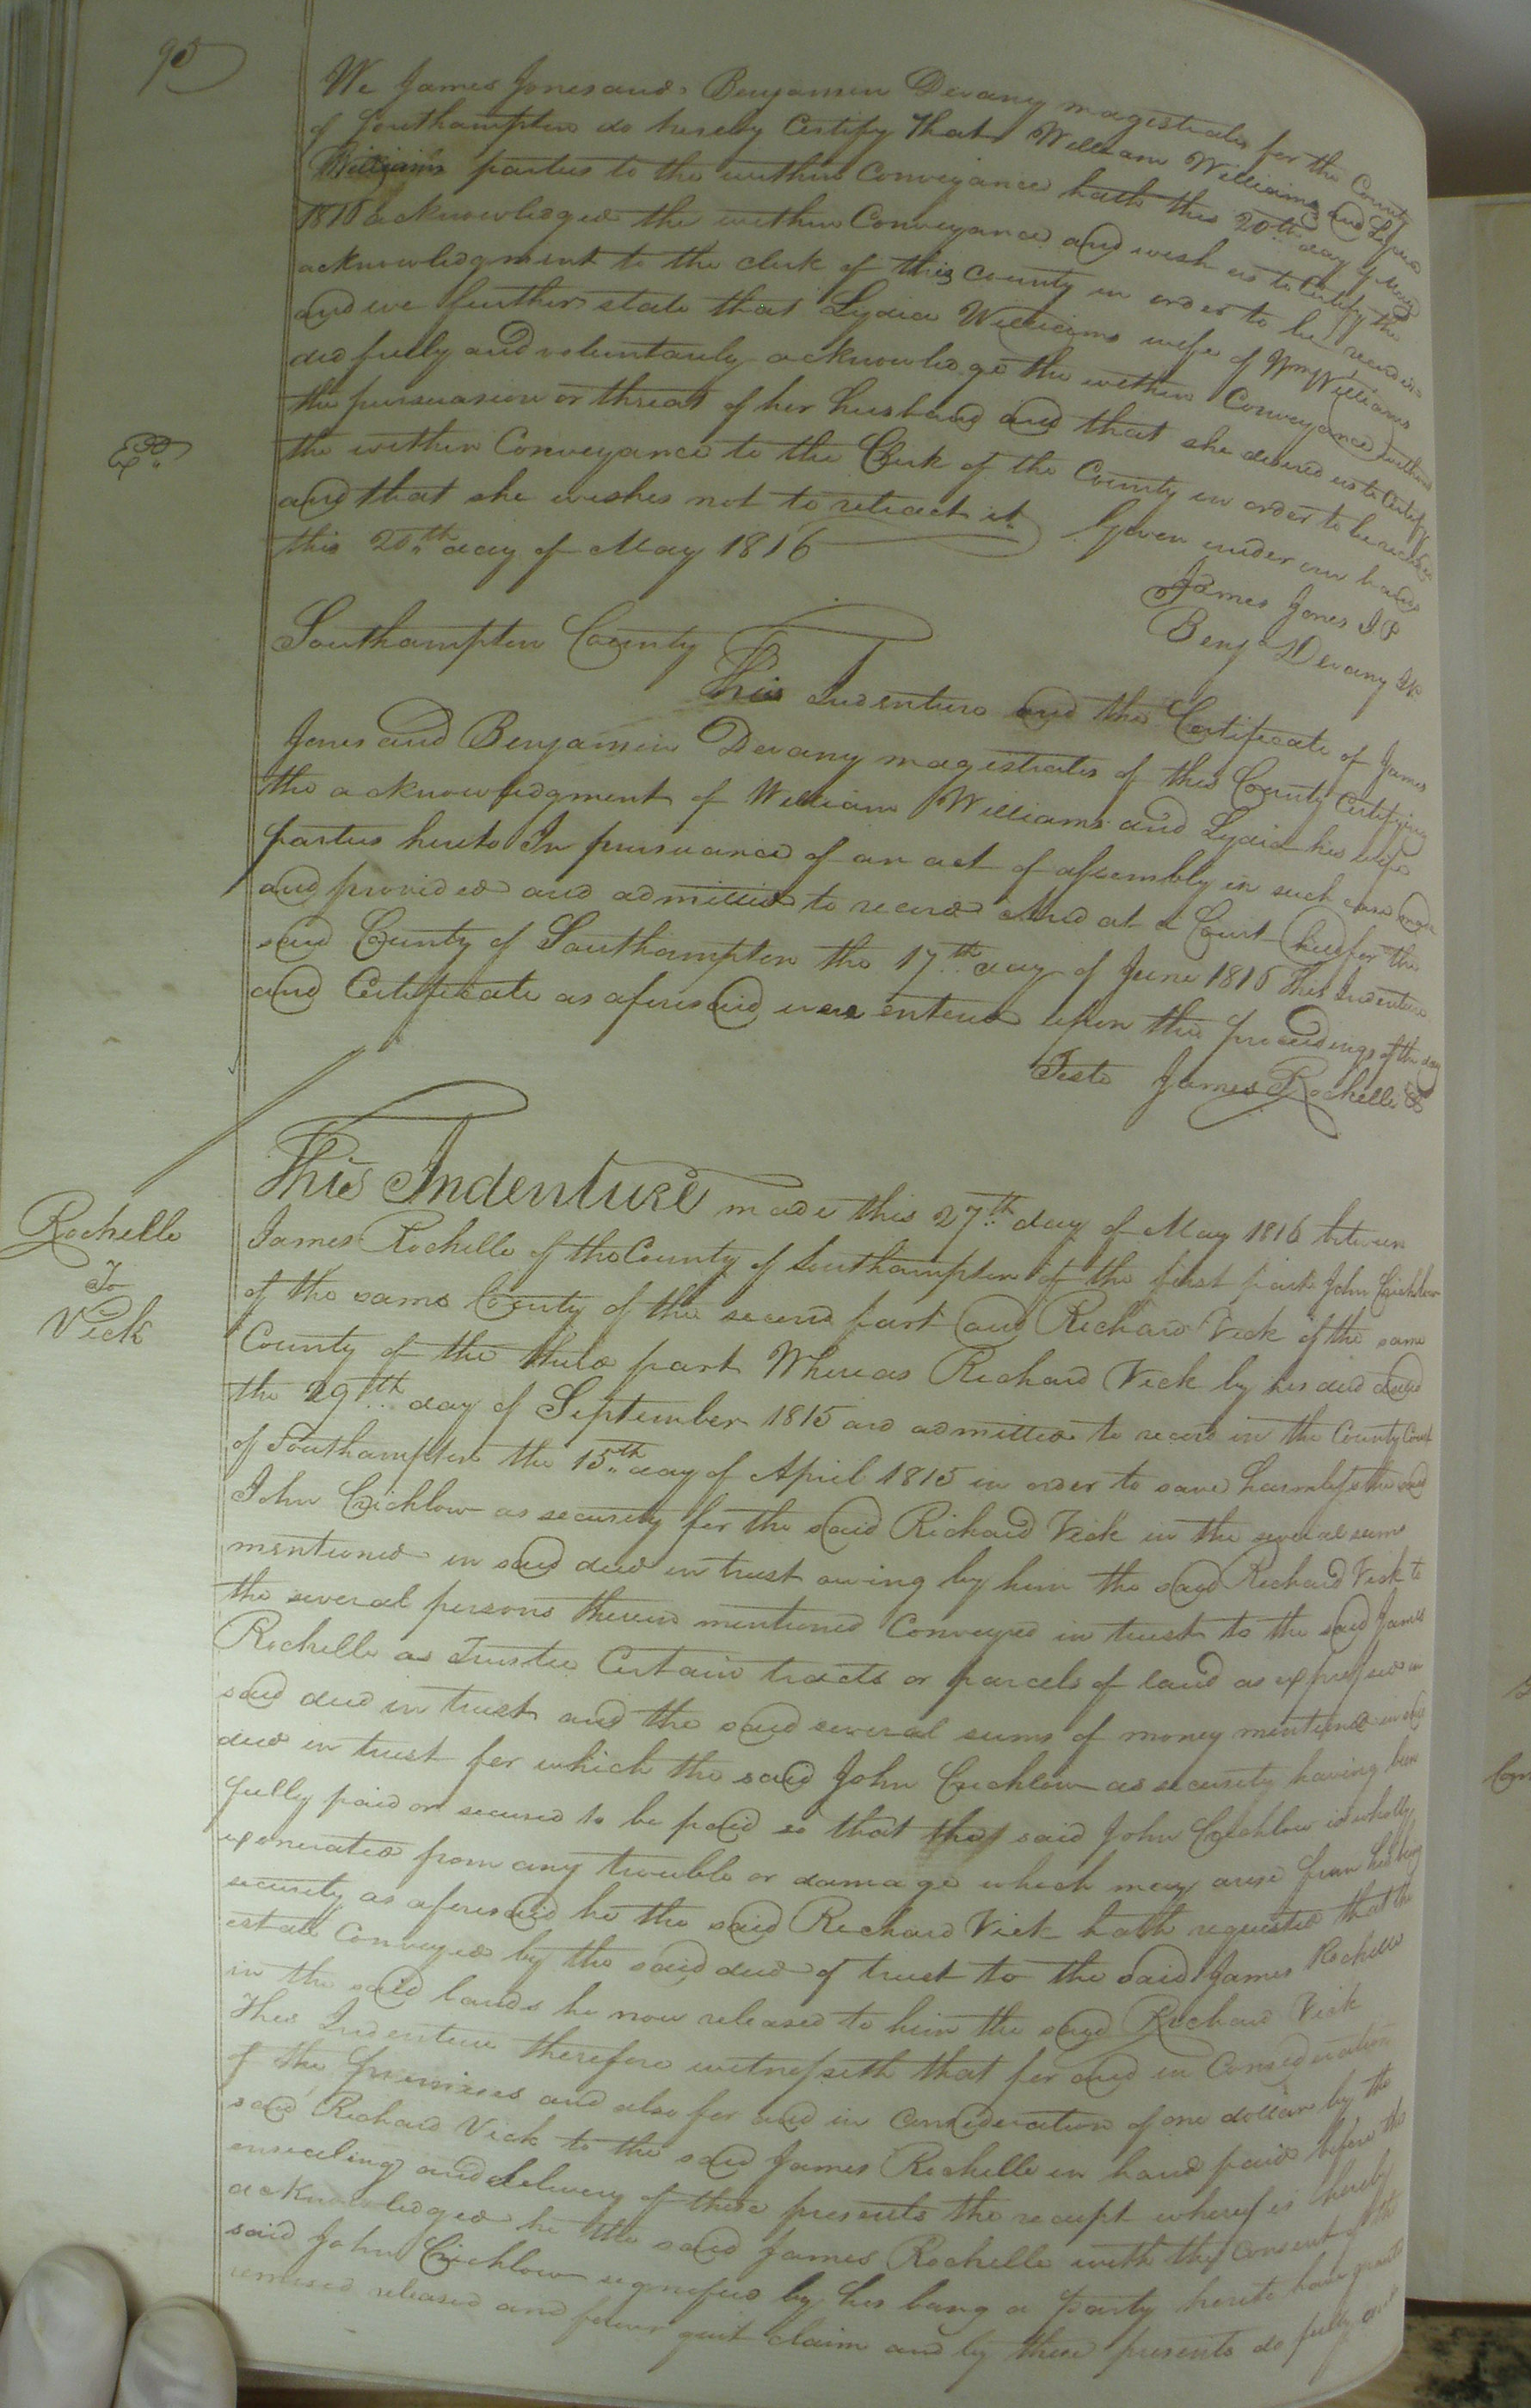 90
We James Jones and Benjamin Devany magistrates for the County
of Southampton do hereby Certify that William Williams and Lydia
Williams parties to the within Conveyance hath this 20th day of May
1816 acknowledged the within Conveyance and wish us to Certify the
acknowledgment to the clerk of this County in order to be recorded
and we further state that Lydia Williams wife of Wm Williams
did fully and voluntarily acknowledge the within Conveyance without
the pursuasion or threat of her husband and that she desired us to Certify
the within Conveyance to the Clerk of the County in order to be recorded
and that she wishes not to retract it Given under our hands
this 20th day of May 1816
James Jones J.P
Benja Devany JP.
Exd
Southampton County
This Indenture and the Certificate of James
Jones and Benjamin Devany magistrates of this County Certifying
the acknowledgment of William Williams and Lydia his wife
parties hereto In pursuance of an act of assembly in such case made
and provided and admitted to record And at a Court held for the
said County of Southampton the 17th day of June 1816 This Indenture
and Certificate as aforesaid were entered upon the proceedings of the day
Teste James Rochelle
Rochelle
To
Vick
This Indenture made this 27th day of May 1816 between
James Rochelle of the County of Southampton of the first part John Crichlow
of the same County of the second part and Richard Vick of the same
County of the third part Whereas Richard Vick by his deed dated
the 29th day of September 1815 and admitted to record in the County Court
of Southampton the 15th day of April 1815 in order to save harmless the said
John Crichlow as security for the said Richard Vick in the several sums
mentioned in said deed in trust owing by him the said Richard Vick to
the several persons therein mentioned Conveyed in trust to the said James
Rochelle as Trustee Certain tracts or parcels of land as expressed in
said deed in trust and the said several sums of money mentioned in said
deed in trust for which the said John Crichlow as security having been
fully paid or secured to be paid so that the said John Crichlow is wholly
exonerated from any trouble or damage which may arise from his being
security as aforesaid he the said Richard Vick hath requested that the
estate Conveyed by the said deed of trust to the said James Rochelle
in the said lands be now released to him the said Richard Vick
This Indenture therefore witnesseth that for and in Consideration
of the premises and also for and in Consideration of one dollar by the
said Richard Vick to the said James Rochelle in hand paid before the
ensealing and delivery of these presents the receipt whereof is hereby
acknowledged he the said James Rochelle with the Consent of the
said John Crichlow signified by his being a party hereto have granted
remised released and forever quit claim and by these presents do fully